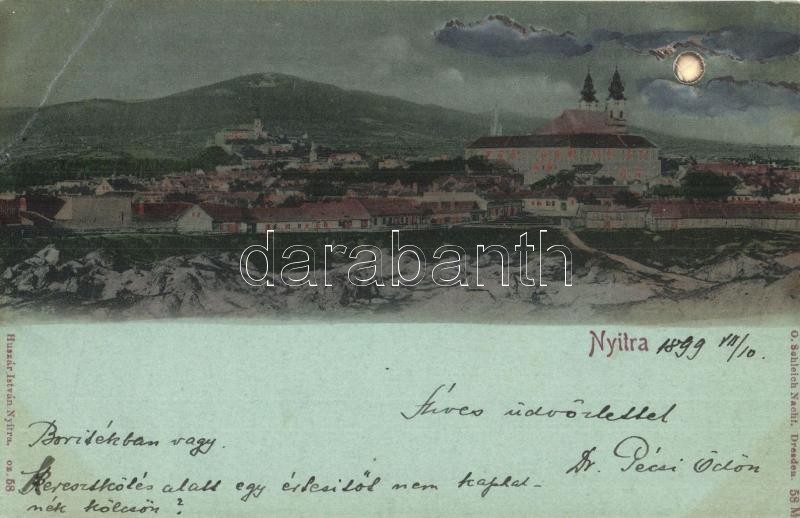 darabanth
Nyitra 1899 VII/10.
Szíves üdvözlettel
Dr. Pécsi Ödön
Borítékban vagy
Keresztkötés alatt egy értesítőt nem kaphat-
nék kölcsön?
Huszár István Nyitra. oz. 58
O. Schleich Nachf. Dresden. 58 M